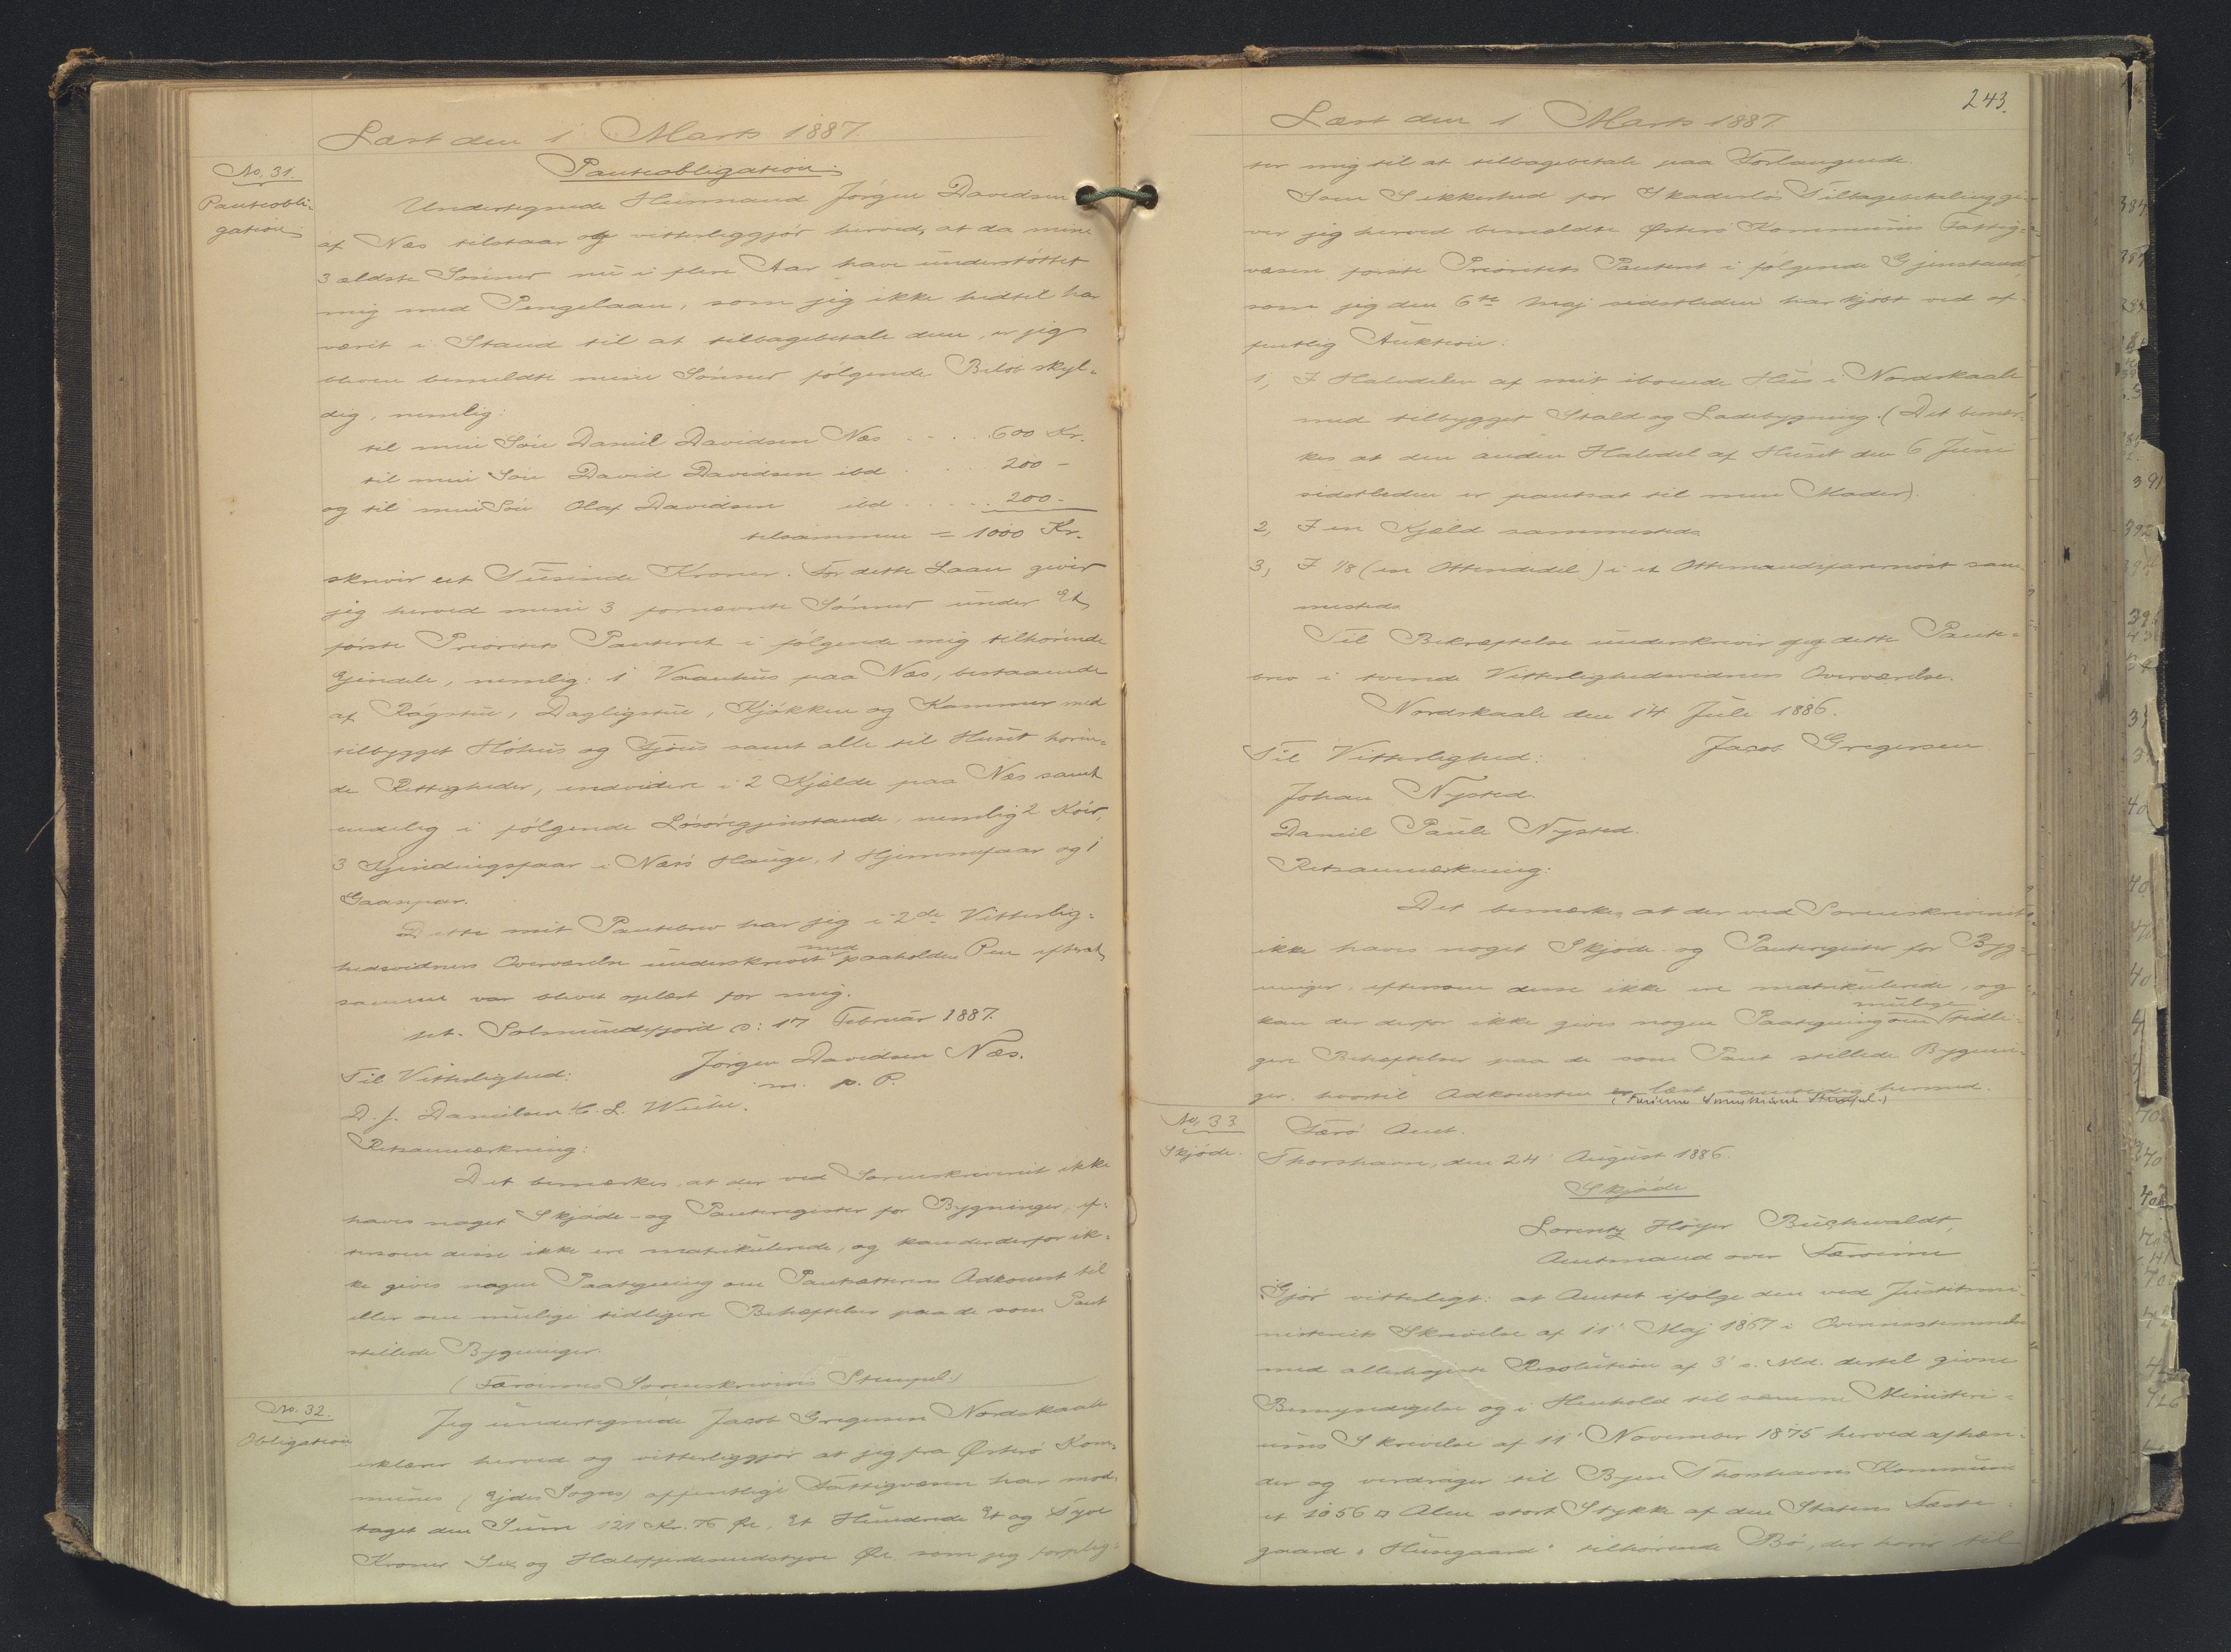 Læst den 1 Marts 1887.
No. 31.
Panteobli-
gation
Panteobligation
Undertegnede Huusmand Jørgen Davidsen
af Næs tilstaar og vitterliggjør herved, at da mine
3 ældste Sønner nu i flere Aar have understøttet
mig med Pengelaan, som jeg ikke hidtil har
været i Stand til at tilbagebetale dem, er jeg
bleven bemeldte mine Sønner følgende Beløb skyl-
dig, nemlig:
til min Søn Daniel Davidsen Næs . . . . 600 Kr.
til min Søn David Davidsen ibd . . . . 200 -
og til min Søn Olaf Davidsen ibd . . . . 200 -
tilsammen = 1000 Kr.
skriver eet Tusinde Kroner. For dette Laan giver
jeg herved mine 3 fornævnte Sønner under Et
første Prioritets Panteret i følgende mig tilhørende
Ejendele, nemlig: 1 Vaanhus paa Næs, bestaaende
af Røgstue, Dagligstue, Kjøkken og Kammer med
tilbygget Høhus og Fjøus samt alle til Huset høren-
de Rettigheder, endvidere i 2 Kjælde paa Næs samt
endelig i følgende Løsøregjenstande, nemlig 2 Køer,
3 Gjeldingsfaar i Næs's Hauge, 1 Hjemmefaar og 1
Gaaspar.
Dette mit Pantebrev har jeg i 2de Vitterlig-
hedsvidners Overværelse underskrevet med paaholden Pen efterat
samme var blevet oplæst for mig.
pt. Solmundefjord d: 17 Februar 1887.
Jørgen Davidsen Næs.
m. p. P.
Til Vitterlighed:
D. J. Danielsen H. L. Weihe.
Retsanmærkning:
Det bemærkes, at der ved Sorenskriveriet ikke
haves noget Skjøde- og Panteregister for Bygninger, ef-
tersom disse ikke ere matrikulerede, og kan der derfor ik-
ke gives nogen Paategning om Pantsætterens Adkomst til
eller om mulige tidligere Behæftelser paa de som Pant
stillede Bygninger.
(Færøernes Sorenskrivers Stempel.)
No. 32.
Obligation
Jeg undertegnede Jacob Gregersen Nordskaale
erklærer herved og vitterliggjør at jeg fra Østerø Kom-
munes (Ejdes Sogns) offentlige Fattigvæsen har mod-
taget den Sum 121 Kr. 76 Øre, Et Hundrede Et og Tyve
Kroner Sex og Halvfjerdesindstyve Øre som jeg forplig-
243.
Læst den 1 Marts 1887.
ter mig til at tilbagebetale paa Forlangende.
Som Sikkerhed for Skadesløs Tilbagebetaling gi-
ver jeg herved bemeldte Østerø Kommunes Fattig-
væsen første Prioritets Panteret i følgende Gjenstande
som jeg den 6te Maj sidstleden har kjøbt ved of-
fentlig Auktion:
1, I Halvdelen af mit iboende Hus i Nordskaale
med tilbygget Stald og Ladebygning. (Det bemær-
kes at den anden Halvdel af Huset den 6 Juni
sidstleden er pantsat til min Moder).
2, I en Kjæld sammesteds
3, I 1/8 (en Ottendedel) i et Ottemandsfarernost sam-
mesteds
Til Bekræftelse underskriver jeg dette Pante-
brev i tvende Vitterlighedsvidners Overværelse.
Nordskaale den 14 Juli 1886.
Jacob Gregersen
Til Vitterlighed:
Johan Nysted.
Daniel Paule Nysted.
Retsanmærkning:
Det bemærkes at der ved Sorenskriveriet
ikke haves noget Skjøde- og Panteregister for Byg-
ninger, eftersom disse ikke ere matrikulerede, og
kan der derfor ikke gives nogen Paategning om mulige tidli-
gere Behæftelser paa de som Pant stillede Bygnin-
ger, hvortil Adkomsten er læst samtidig hermed.
(Færøernes Sorenskrivers Stempel.)
No. 33
Skjøde.
Færø Amt.
Thorshavn, den 24' August 1886.
Skjøde
Lorentz Høyer Buchwaldt,
Amtmand over Færøerne
Gjør vitterligt: at Amtet ifølge den ved Justitsmi-
nisteriets Skrivelse af 11' Maj 1867 i Overensstemmelse
med allerhøjeste Resolution af 3' s. Md. dertil givne
Bemyndigelse og i Henhold til samme Ministeri-
ums Skrivelse af 11' November 1875 herved afhæn-
der og overdrager til Byen Thorshavns Kommune
et 1056 □ Alen stort Stykke af den Statens Fæste-
gaard "Husegaard" tilhørende Bø, der hører til